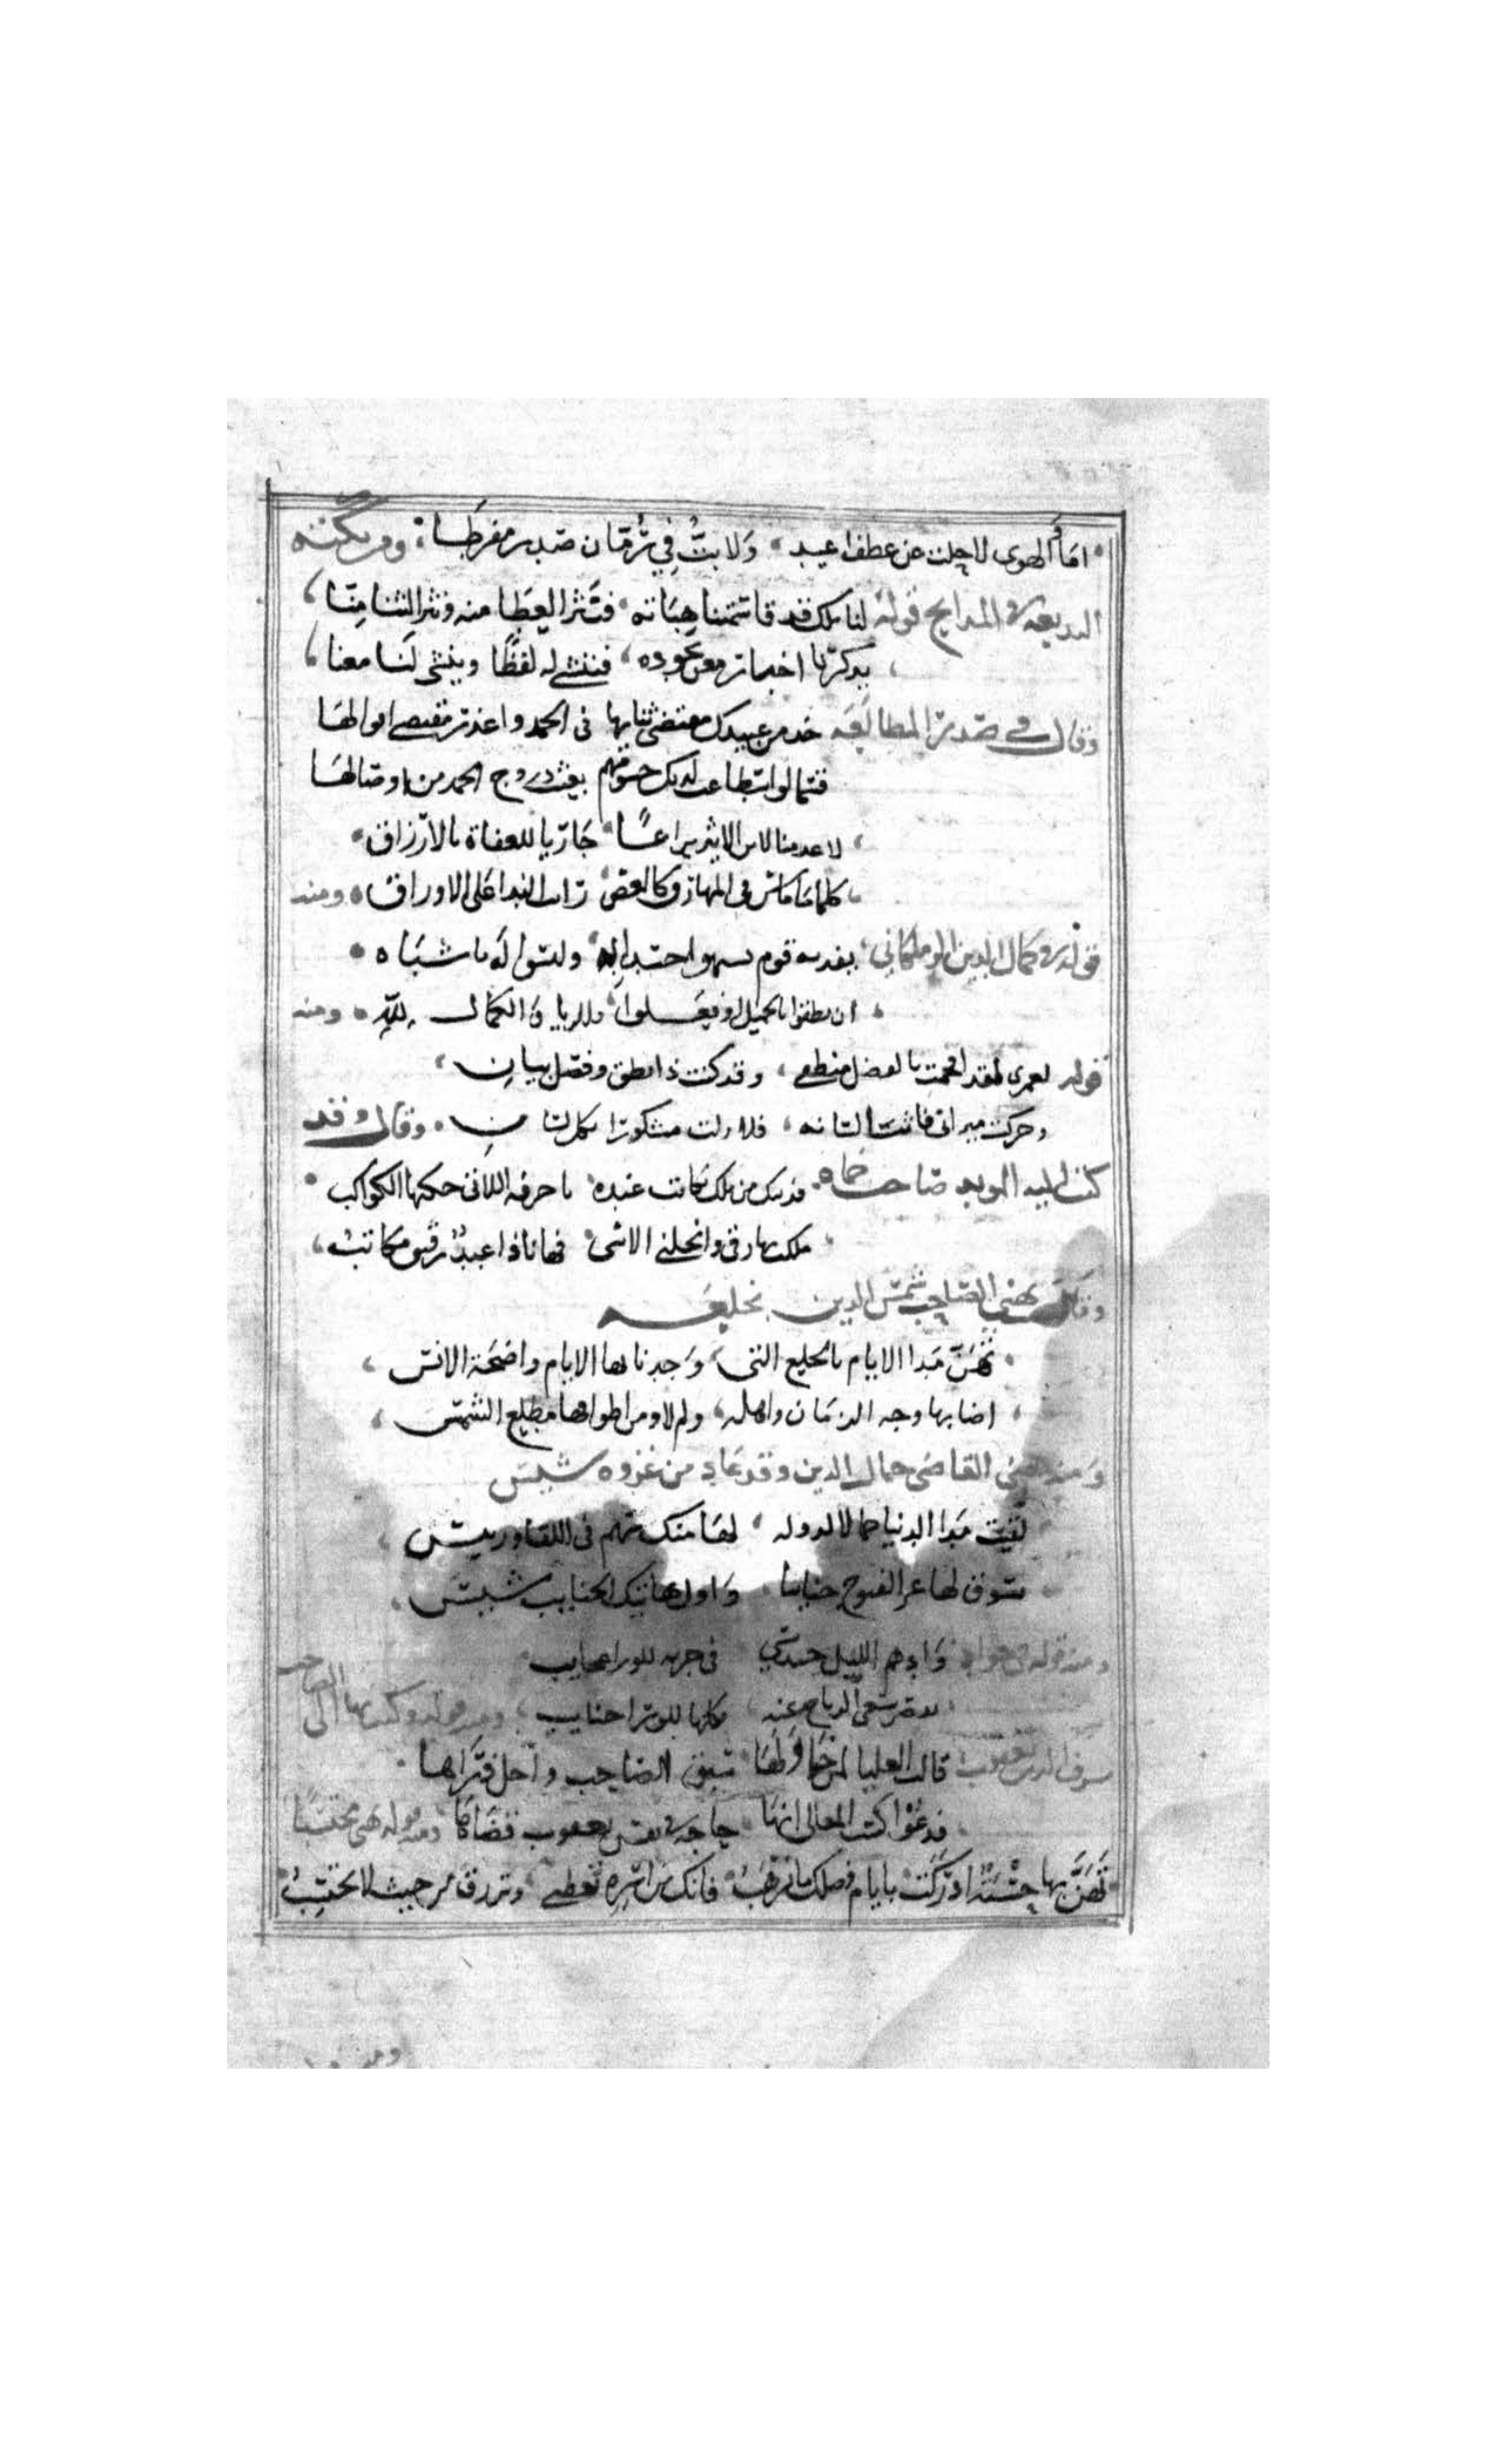 اما والهوى لا حلت عن عطف اغيد ولا بت في رمان صدر مفرطا ومن نكته
البديعه في المدايح قوله لنا ملك قد قاسمتنا هباته فنثر العطا منه ونثر الثنا منا
يذكرنا اخبار معن بجوده فننشي له لفظا وينشي لنا معنا
وقال في صدر المطالعه خدم من عبيدك مقتضى ثنايها في الحمد واعذر مقتصى اقوالها
قسما لو اسطاعت لديك جسومهم بعثت روح الحمد من اوصالها
لا عدمنا لابن الاثير يراعا جاريا للعفاة بالارزاق
كلما ماس في المهارق كالغصن رات الندا على الاوراق ومنه
قوله في كمال الدين الزملكاني يفديه قوم ليسوا له باشباه
ان نطقوا بالجميل او فعلوا فللريا والكمال لله ومنه
قوله لعمري لقد افحمت بالفضل منطقي وقد كنت ذا نطق وفضل بيان
وحركت ميزاني لسانه فلا زلت مشكورا بكل لسان وقال وقد
كتب اليه المويد صاحب حماه فديتك من ملك يكاتب عبده باحرفه اللاتي حكتها الكواكب
ملكت بها رقي وانحلني الاسى فها انا ذا عبد رقيق مكاتب
وقال يهني الصاحب شمس الدين بخلعه
تهن مدا الايام بالخلع التي وجدنا بها الايام واضحة الانس
اضا بها وجه الزمان واهله ولم لا ومن اطواقها مطلع الشمس
ومنه يهني القاضي جمال الدين وقد عاد من غزوه سيس
بقيت مدا الدنيا جمالا لدوله لها منك سهم في اللقا وريس
تسوق لها غر الفتوح جنايبا واول هاتيك الجنايب سيس
ومنه قوله في جواد وادهم الليل حبشي في جريه للورا عجايب
تقصر سعي الرياح عنه فكلها للورا جنايب ومنه قوله وكتب بها الى الصاحب
شرف الدين يعقوب قالت العليا لمن حاولها سبق الصاحب واحتل ذراها
فدعوا كسب المعالي انها حاجة في نفس يعقوب قضاها ومنه قوله يهني محتسبا
تهن بها حسبة ادركت بايام فضلك ما ترقب فانك من اسره تعطي وترزق من حيث لا تحتسب